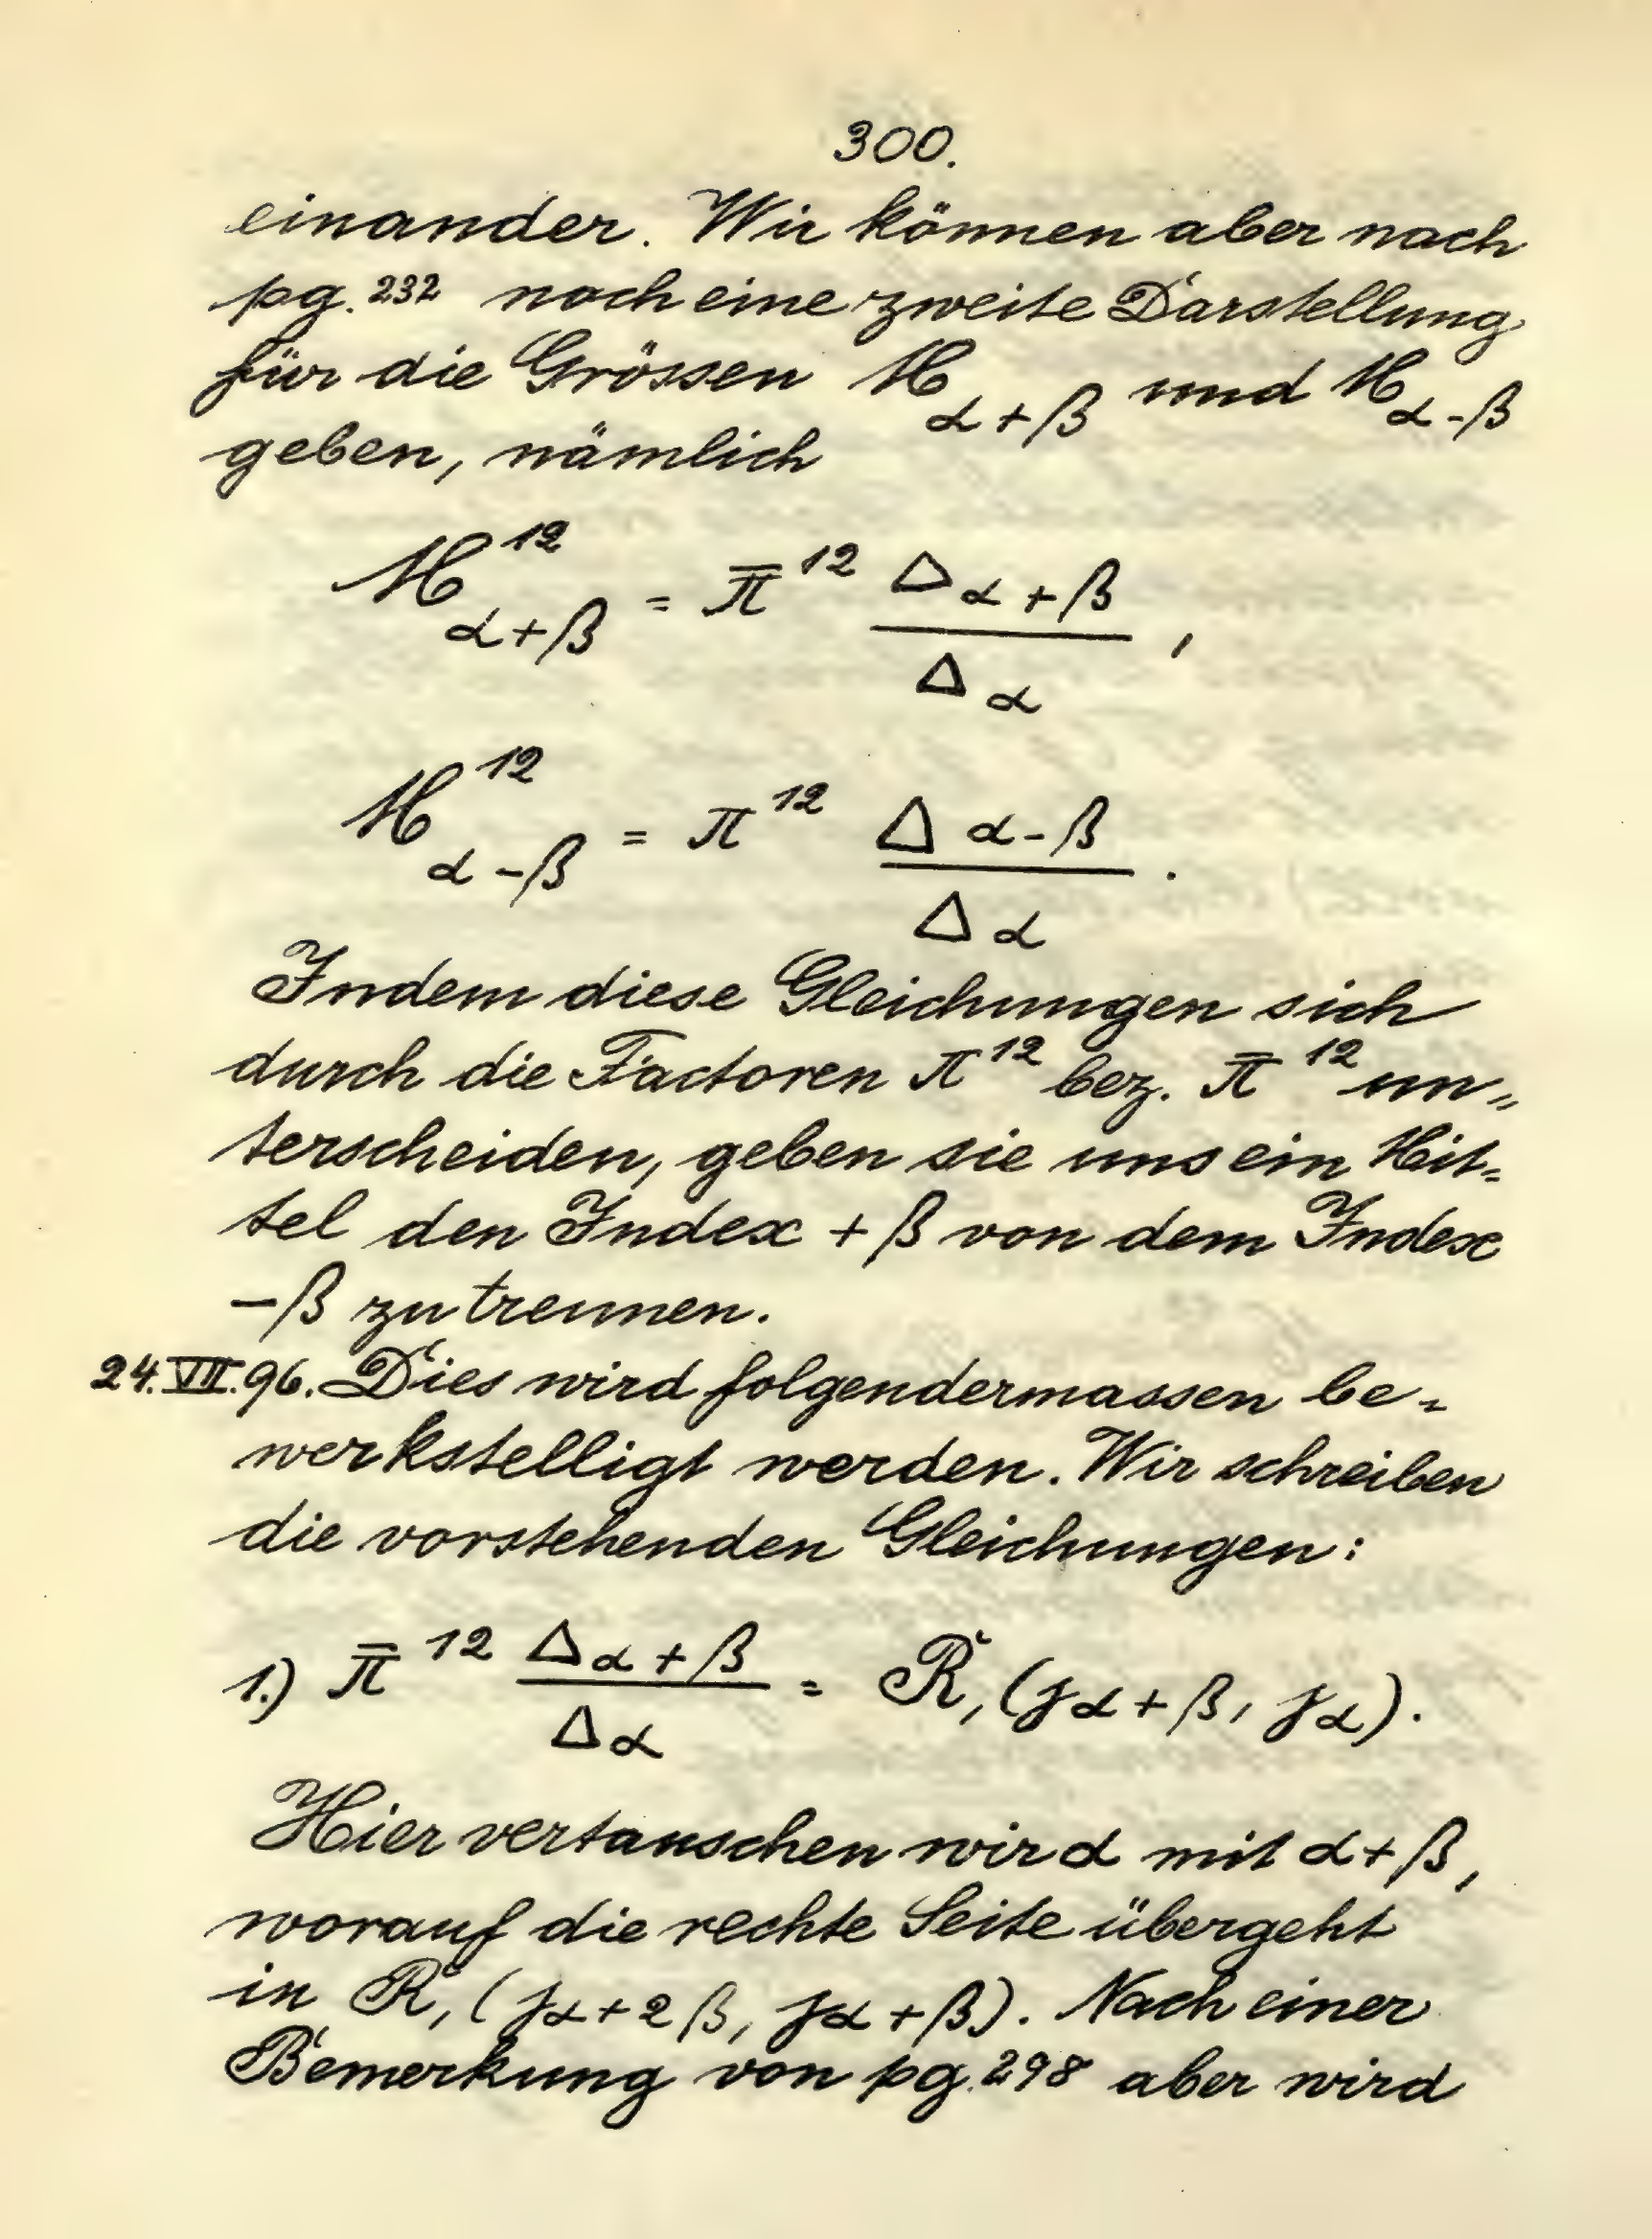 300.
einander. Wir können aber nach
pg. 232 noch eine zweite Darstellung
für die Grössen M_{α+β} und M_{α-β}
geben, nämlich
M^{12}_{α+β} = π̄^{12} Δ_{α+β} / Δ_α ,
M^{12}_{α-β} = π^{12} Δ_{α-β} / Δ_α .
Indem diese Gleichungen sich
durch die Factoren π^{12} bez. π̄^{12} un-
terscheiden, geben sie uns ein Mit-
tel den Index +β von dem Index
-β zu trennen.
24.VII.96. Dies wird folgendermassen be-
werkstelligt werden. Wir schreiben
die vorstehenden Gleichungen:
1.) π̄^{12} Δ_{α+β} / Δ_α = R_1 (j_{α+β}, j_α).
Hier vertauschen wir α mit α+β,
worauf die rechte Seite übergeht
in R_1 (j_{α+2β}, j_{α+β}). Nach einer
Bemerkung von pg. 298 aber wird